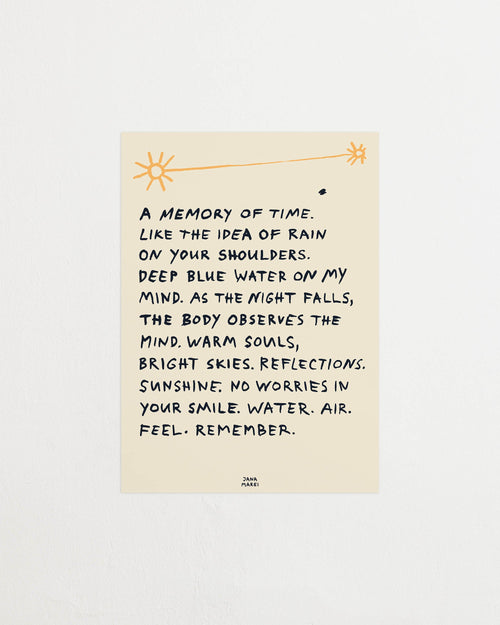 A MEMORY OF TIME.
LIKE THE IDEA OF RAIN
ON YOUR SHOULDERS.
DEEP BLUE WATER ON MY
MIND. AS THE NIGHT FALLS,
THE BODY OBSERVES THE
MIND. WARM SOULS,
BRIGHT SKIES. REFLECTIONS.
SUNSHINE. NO WORRIES IN
YOUR SMILE. WATER. AIR.
FEEL. REMEMBER.
JANA
MAREI